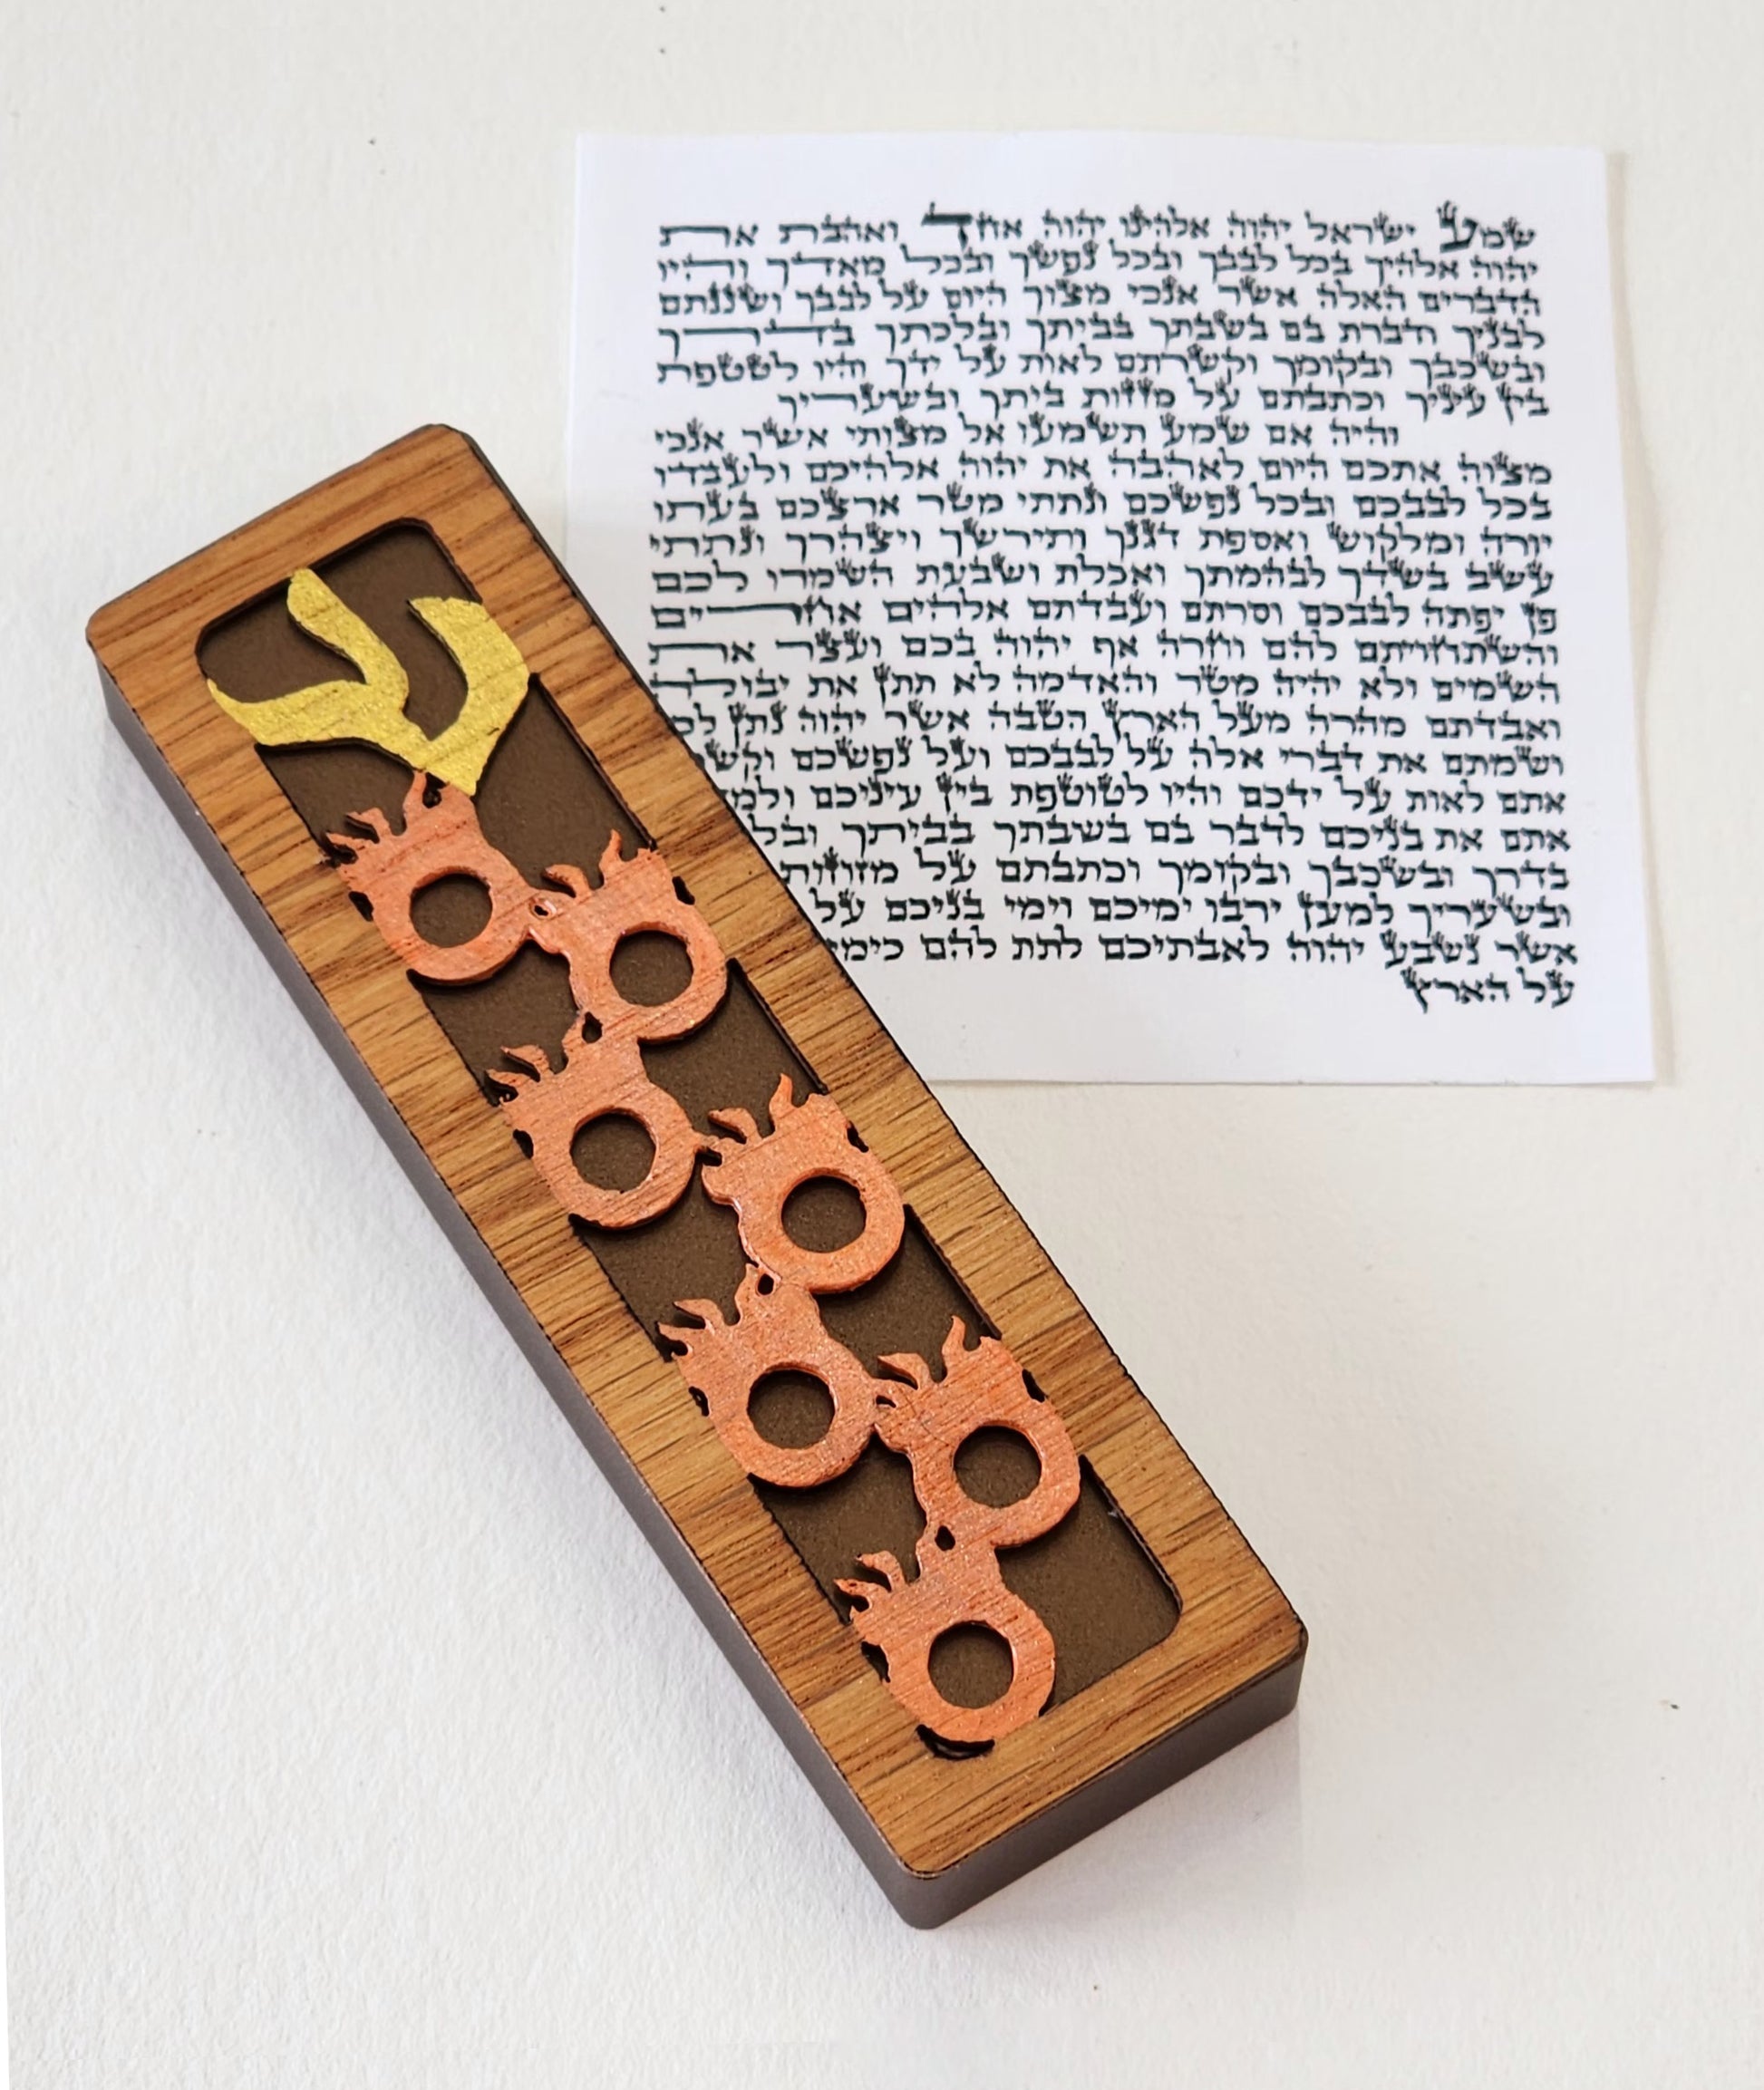 ש
שמע ישראל יהוה אלהינו יהוה אחד ואהבת את
יהוה אלהיך בכל לבבך ובכל נפשך ובכל מאדך והיו
הדברים האלה אשר אנכי מצוך היום על לבבך ושננתם
לבניך ודברת בם בשבתך בביתך ובלכתך בדרך
ובשכבך ובקומך וקשרתם לאות על ידך והיו לטטפת
בין עיניך וכתבתם על מזוזות ביתך ובשעריך
והיה אם שמע תשמעו אל מצותי אשר אנכי
מצוה אתכם היום לאהבה את יהוה אלהיכם ולעבדו
בכל לבבכם ובכל נפשכם ונתתי מטר ארצכם בעתו
יורה ומלקוש ואספת דגנך ותירשך ויצהרך ונתתי
עשב בשדך לבהמתך ואכלת ושבעת השמרו לכם
פן יפתה לבבכם וסרתם ועבדתם אלהים אחרים
והשתחויתם להם וחרה אף יהוה בכם ועצר את
השמים ולא יהיה מטר והאדמה לא תתן את יבולה
ואבדתם מהרה מעל הארץ הטבה אשר יהוה נתן לכם
ושמתם את דברי אלה על לבבכם ועל נפשכם וקש
אתם לאות על ידכם והיו לטוטפת בין עיניכם ולמ
אתם את בניכם לדבר בם בשבתך בביתך ובל
בדרך ובשכבך ובקומך וכתבתם על מזוזות
ובשעריך למען ירבו ימיכם וימי בניכם על
אשר נשבע יהוה לאבתיכם לתת להם כימי
על הארץ